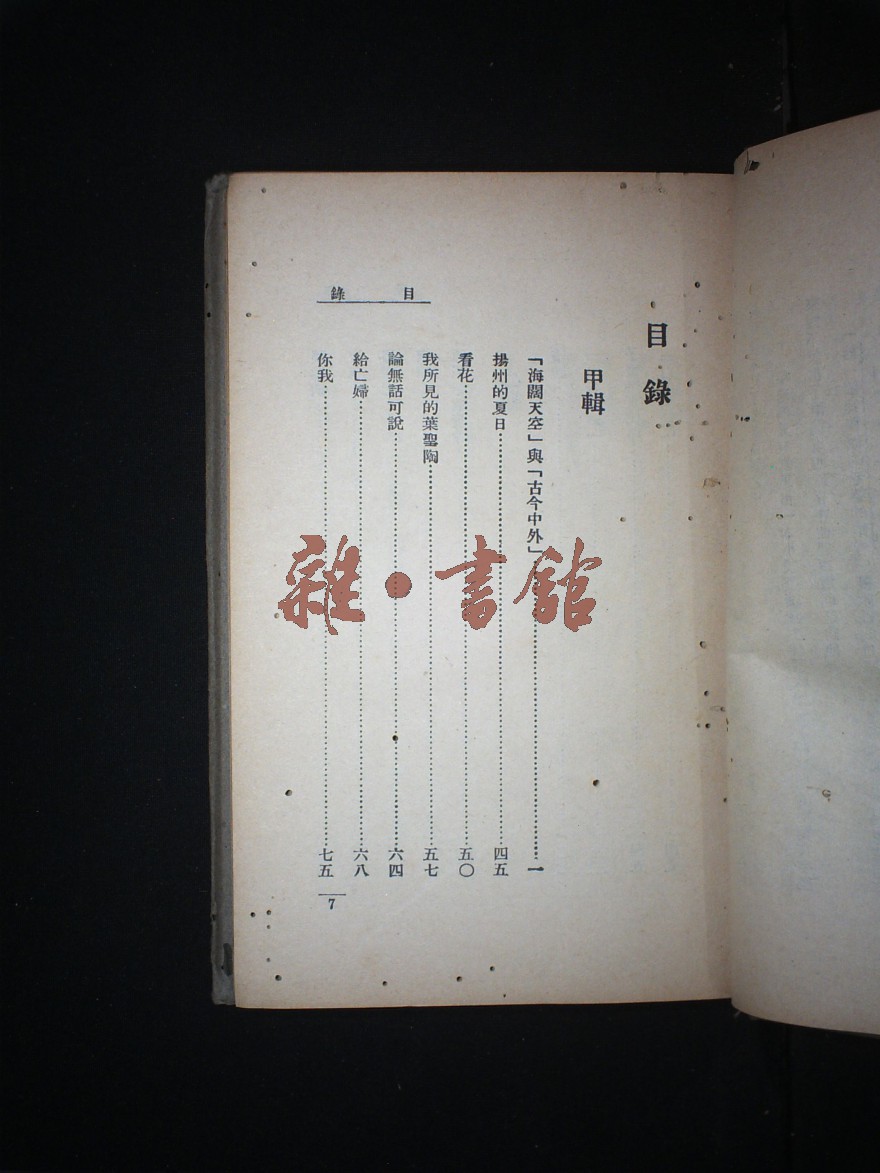 目錄
目錄
甲輯
「海闊天空」與「古今中外」……一
揚州的夏日……四五
看花……五〇
我所見的葉聖陶……五七
論無話可說……六四
給亡婦……六八
你我……七五
7
雜·書館